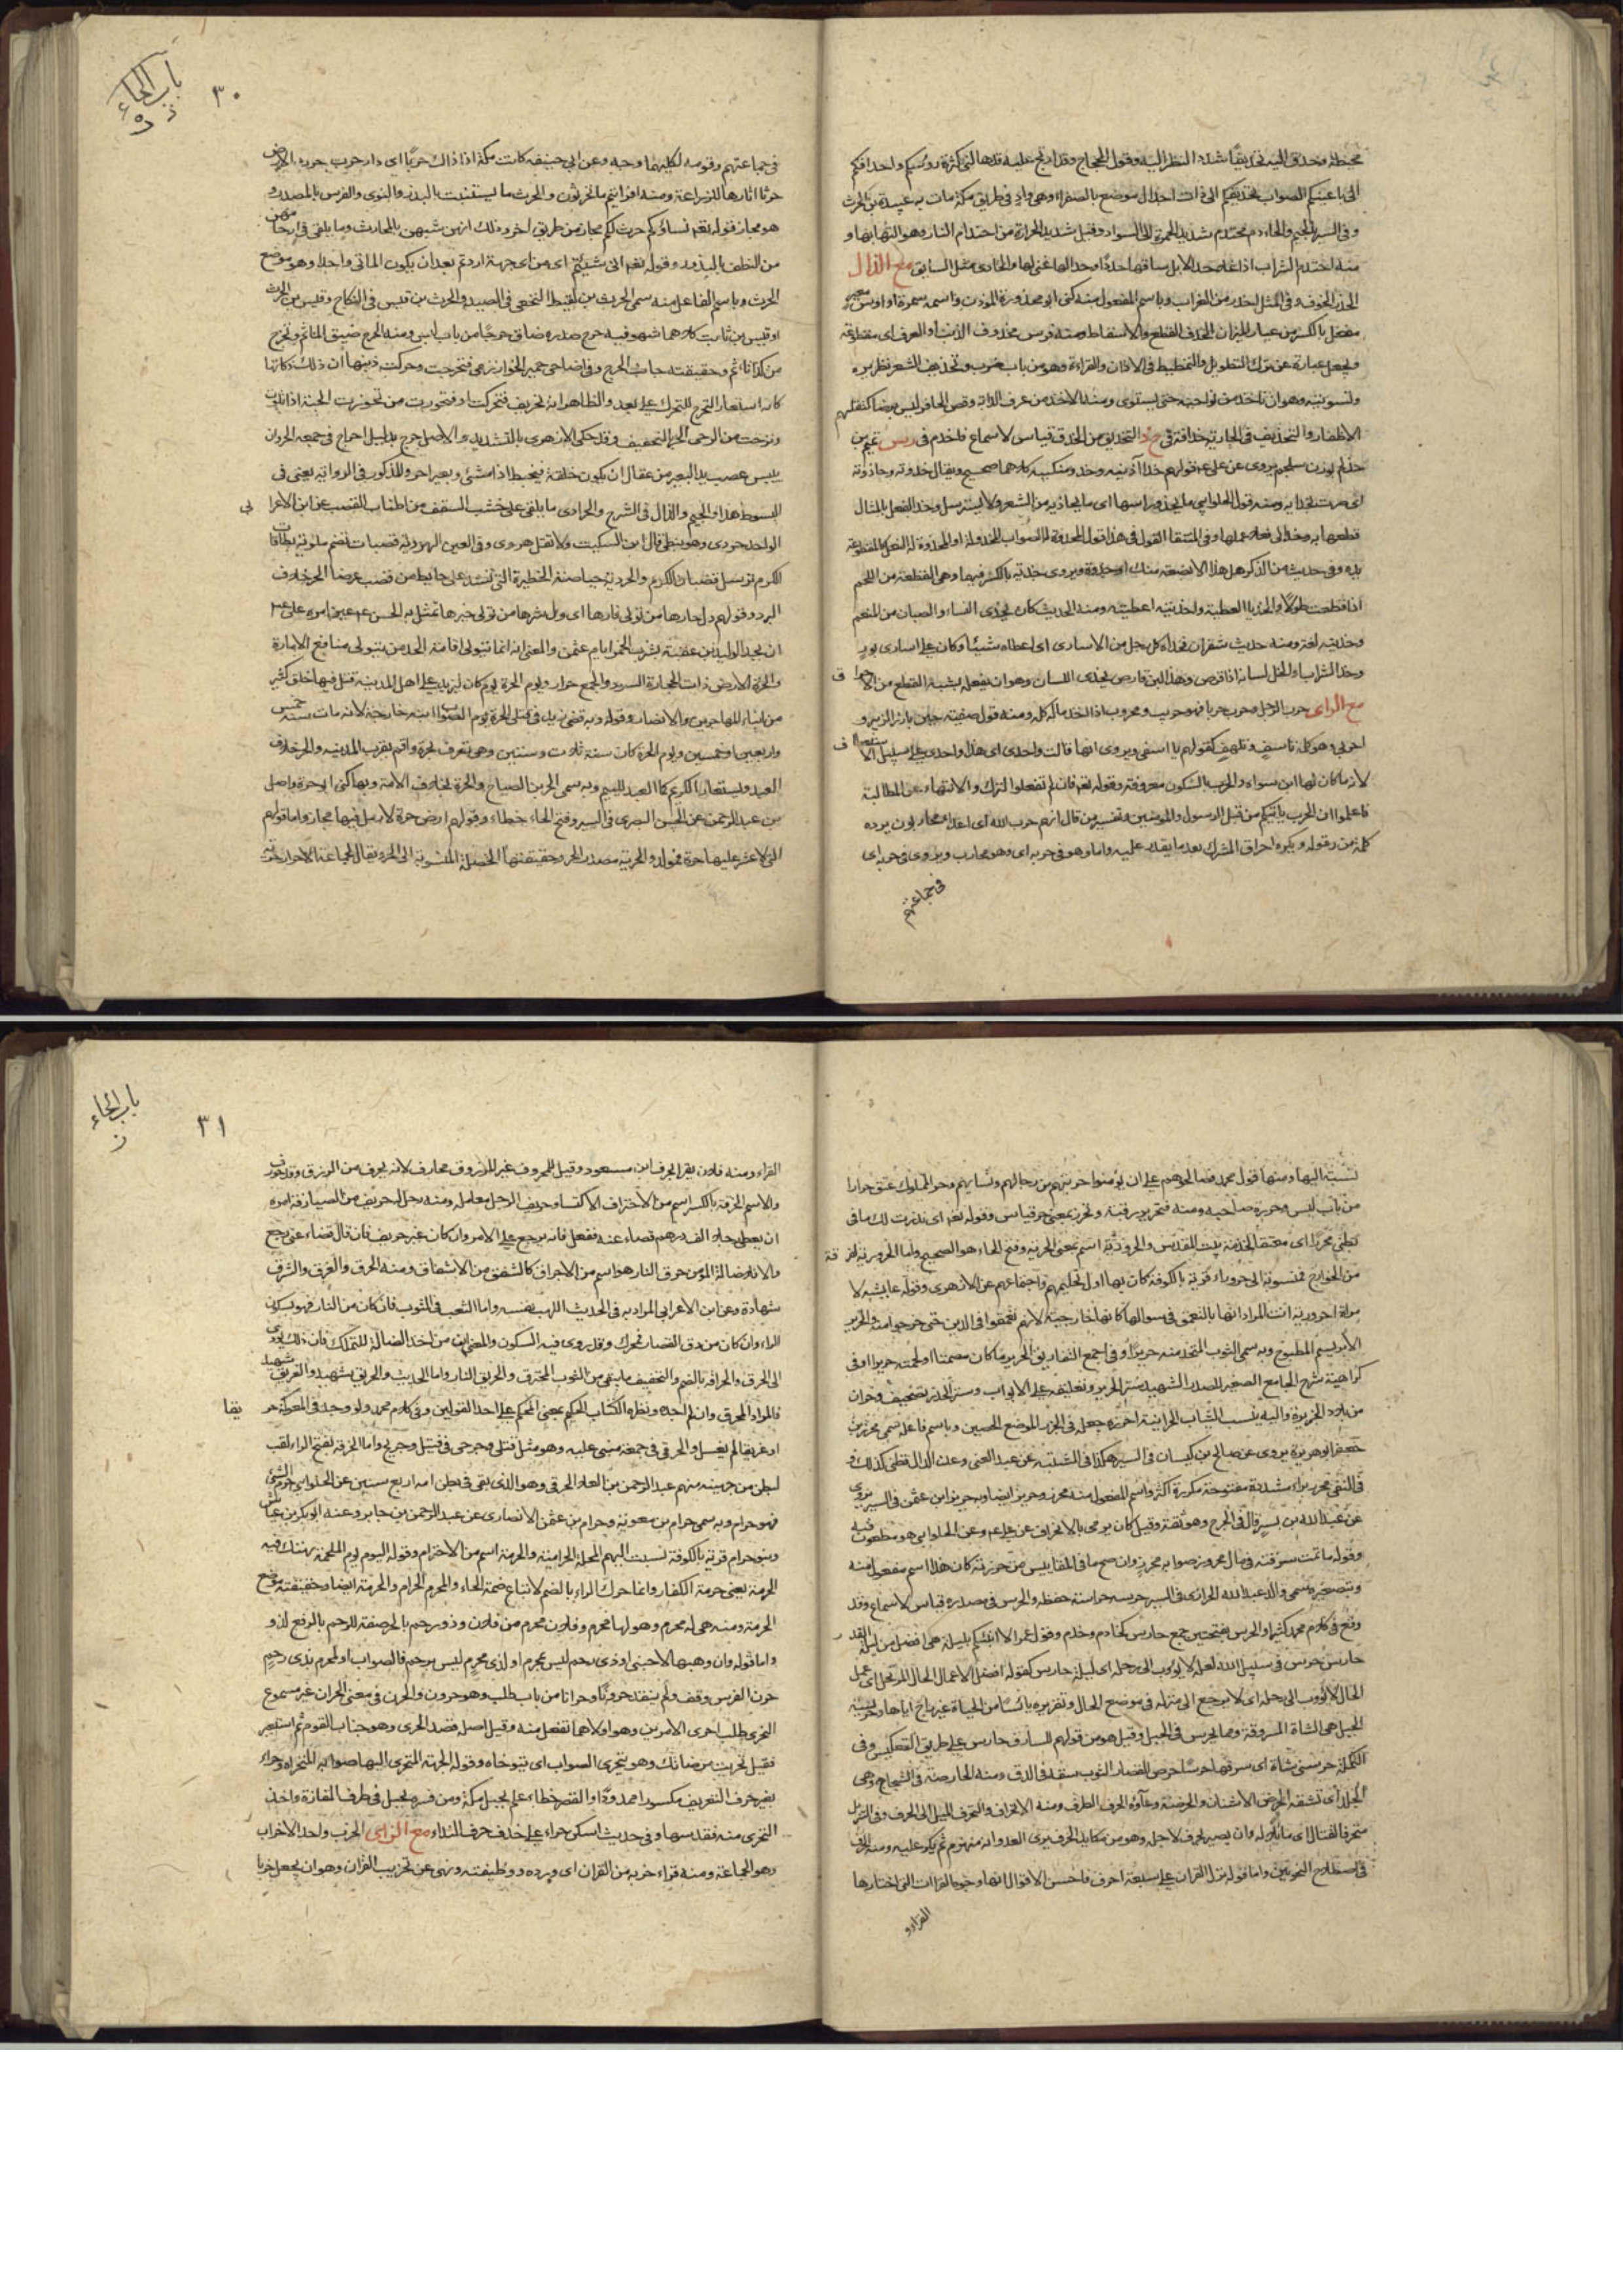 باب الحاء
٣٠
محيطة وحدق اليه تحديقا شدد النظر اليه وقول الحجاج وقد ارتج عليه قد هالتني كثرة رؤسكم واحداقكم
الى باعينكم الصواب بتحديقكم الى ذات اجدال موضع بالصفراء وهي واد في طريق مكة مات به عبيدة بن الحرث
وفي السير بالجيم والحاء دم محتدم شديد الحمرة الى السواد وقيل شديد الحرارة من احتدام النار وهو التهابها و
منه احتدم الشراب اذا غلا حدا الابل ساقها حدوا وحدا لها غنى لها والحادي مثل السابق مع الذال
الحذر الخوف وفي المثل احذر من الغراب وباسم المفعول منه كنى ابو محذورة المؤذن واسمه سمرة او اوس بن معير
مفعل بالكسر من عيار الميزان الحذف القطع والاسقاط ومنه فرس محذوف الذنب او العرف اي مقطوعه
وجعل عبارة عن ترك التطويل والتمطيط في الاذان والقراءة وهو من باب ضرب وتحذيف الشعر تطريره
وتسويته وهو ان تاخذ من نواحيه حتى يستوي ومنه الاخذ من عرف الدابة وقص الحافر ليس برضا كتقليم
الاظفار والتحذيف في الجارية حذاقة في
حذلم بوزن سلجم يروى عن علي قولهم حذا اذنيه وحذو منكبيه كلاهما صحيح ويقال حذوته وحاذوته
اي صرت بحذائه ومنه قول الحلوائي ما يحذو راسها اي ما يحاذيه من الشعر ولا يسترسل وحذا النعل بالمثال
قطعها به
وفي حديث مس الذكر هل هذا الا بضعة منك او حذوة ويروى حذية بالكسر فيهما وهي القطعة من اللحم
اذا قطعت طولا والحذيا العطية واحذيته اعطيته ومنه الحديث كان يحذي النساء والصبيان من المغنم
وحذيته لغة ومنه حديث شقران فحذاه كل رجل من الاسارى اي اعطاه شيئا وكان على اسارى بدر
وحذا الشراب او الخل لسانه اذا قرصه وهذا لبن قارص يحذي اللسان وهو ان يفعل به شبه القطع من
مع الراي حرب الرجل وحرب حربا فهو حريب ومحروب اذا اخذ ماله كله ومنه قول صفية حين بارز الزبير و
احربي وهو كلمة تاسف وتلهف كقولهم يا اسفي ويروى انها قالت واحدي اي هذا واحدي على سبيل
لانه ما كان لها ابن سواه والحرب بالسكون معروفة وقوله تعه فان لم تفعلوا الترك والانتهاء عن المطالبة
فاعلموا ان الحرب ياتيكم من قبل الرسول والمؤمنين وتفسير من قال انهم حرب الله اي اعداء محاربون يرده
كلمة من وقوله ويكره احراق المشرك بعد ما يقدر عليه واما وهو في حربه اي وهو محارب ويروى في حربه اي
في جماعتهم
في جماعتهم وقومه لكليهما وجه وعن ابي حنيفة كانت مكة اذ ذاك حربا اي دار حرب حرث الارض
حرثا اثارها للزراعة ومنه افرايتم ما تحرثون والحرث ما يستنبت بالبذر والنوى والغرس بالمصدر و
هو مجاز وقوله تعه نساؤكم حرث لكم مجاز من طريق اخر وذلك انهن شبهن بالمحارث وما يلقى في ارحامهن
من النطف بالبذور وقوله تعه انى شئتم اي من اي جهة اردتم بعد ان يكون الماتى واحدا وهو موضع
الحرث وباسم الفاعل منه سمي الحرث بن لقيط النخعي في الصيد والحرث بن قيس في النكاح وقيس بن الحرث
او قيس بن ثابت كلاهما سهو فيه حرج صدره ضاق حرجا من باب لبس ومنه الحرج ضيق الماثم وتحرج
من كذا تاثم وحقيقته جانب الحرج
كانه استعار التحرج للتحرك على بعد والظاهر انه تحريف فتحركت
الحردان
ييبس عصب يد البعير من عقال ان يكون خلقة فيخبط اذا مشى وبعير احرد
والحرادي ما يلقى على خشب السقف من اطنان القصب عن ابن الاعرابي
الواحد حردي وهو نبطي قال ابن السكيت ولا تقل هردي وفي العين الهردية قصبات تضم ملوية بطاقات
الكرم ترسل قضبان الكرم والحردية حياصة الحظيرة التي تشد على حائط من قصب عرضا الحر خلاف
البرد وقولهم ول حارها من تولى قارها اي ول شرها من تولى خيرها تمثل به الحسن عم حين امره علي عم
ان يحد الوليد بن عقبة بشرب الخمر ايام عثمن والمعنى انه انما تتولى اقامة الحد من يتولى منافع الامارة
والحرة الارض ذات الحجارة السود والجمع حرار ويوم الحرة يوم كان ليزيد على اهل المدينة قتل فيها خلق كثير
من ابناء المهاجرين والانصار وقوله وبه قضى زيد في قتلى الحرة يوم الصواب ابنه خارجة لانه مات سنة خمس
واربعين او خمسين ويوم الحرة كان سنة ثلاث وستين وهي تعرف بحرة واقم بقرب المدينة والحر خلاف
العبد ويستعار للكريم كما العبد للئيم وبه سمي الحر بن الصباح والحرة خلاف الامة وبها كنى ابو حرة واصل
بن عبد الرحمن عن الحسن البصري في السير وفتح الحاء خطاء وقولهم ارض حرة لا رمل فيها مجاز واما قولهم
التي لا عشر عليها حرة فمولد والحرية مصدر الحر وحقيقتها الخصلة المنسوبة الى الحر ويقال لجماعة الاحرار حرية
باب الحاء
٣١
نسبة اليها ومنها قول محمد فصالحوهم على ان يؤمنوا حريتهم من رجالهم ونسائهم وحر المملوك عتق حرارا
من باب لبس وحرره صاحبه ومنه فتحرير رقبة وتحرر بمعنى حر قياس وقوله تعه اي نذرت لك ما في
بطني محررا اي معتقا لخدمة بيت المقدس والحرورية اسم بمعنى الحرية وفتح الحاء هو الصحيح واما الحرورية لفرقة
من الخوارج فمنسوبة الى حروراء قرية بالكوفة كان بها اول تحكيمهم واجتماعهم عن الازهري وقول عايشة لا
مراة احرورية انت المراد انها بالتعمق في سوالها كانها خارجية لانهم تعمقوا في الدين حتى خرجوا منه والحرير
الابريسم المطبوخ وبه سمي الثوب المتخذ منه حريرا وفي جمع التفاريق الحرير ما كان مصمتا او لحمته حريرا وفي
كراهية شرح الجامع الصغير للصدر الشهيد ستر الحرير وتعليقه على الابواب وستر الخدر تصحيف وحران
من بلاد الجزيرة واليه ينسب الثياب الحرانية احرزه جعله في الحرز الموضع الحصين وباسم فاعله سمي محرز بن
جعفر ابو هريرة يروى عن صالح بن كيسان في السير هكذا في المشتبه عن عبد الغني وعن الدارقطني كذلك و
في النتف محرر براء مشددة مفتوحة مكررة
عن عبد الله بن بسر قال في الجرح وهو ثقة وقيل كان يرمى بالانحراف عن علي عم وعن الحلوائي هو مطعون فيه
وقوله ما تمت سرقته في مال محروز صوابه محرز وان صح ما في المقاييس من حرزته كان هذا اسم مفعول منه
وبتصغيره سمي والد عبد الله الحرازي في السير حرسه حراسة حفظه والحرس في مصدره قياس لا سماع وقد
وقع في كلام محمد كثيرا والحرس بفتحتين جمع حارس كخادم وخدم وقول عمر الا انبئكم بليلة هي افضل من ليلة القدر
حارس حرس في سبيل الله لعله لا يؤوب الى رحله اي ليلة حارس كقوله افضل الاعمال الحال المرتحل اي عمل
الحال لا يؤوب الى رحله اي لا يرجع الى منزله في موضع الحال وتقريره يائسا من الحياة غير راج اياها وحريسة
الجبل هي الشاة المسروقة مما يحرس في الجبل وقيل هو من قولهم للسارق حارس على طريق التعكيس وفي
التكملة حرسني شاة اي سرقها حرسا حرص القصار الثوب شقه في الدق ومنه الحارصة في الشجاج وهي
التي تشقه الحرض الاشنان والمحرضة وعاؤه الحرف الطرف ومنه الانحراف والتحرف الميل الى الحرف وفي التنزيل
متحرفا لقتال اي مائلا له وان يصير بحرف لاجله وهو من مكايد الحرب يري العدو انه منهزم ثم يكر عليه ومنه الحرف
في اصطلاح النحويين واما قوله نزل القران على سبعة احرف فاحسن الاقوال انها وجوه القراات التي اختارها
القراء و
القراء ومنه فلان يقرا بحرف ابن مسعود وقيل للمحروم غير المرزوق محارف لانه يحرف من الرزق وقد حورف
والاسم الحرفة بالكسر اسم من الاحتراف الاكتساب وحريف الرجل معامله ومنه رجل له حريف من الصيارفة امره
ان يعطي رجلا الف درهم قضاء عنه ففعل فانه يرجع على الامر وان كان غير حريف فان قال قضاء عني رجع
والا فلا ضالة المؤمن حرق النار هو اسم من الاحراق كالشفق من الاشفاق ومنه الحرق والغرق والشرق
شهادة وعن ابن الاعرابي المراد به في الحديث اللهب نفسه واما الثقب في الثوب فان كان من النار فهو بسكون
الراء وان كان من دق القصار محرك وقد روي فيه السكون والمعنى ان من اخذ الضالة للتملك فان ذلك يؤدي
الى الحرق والحراقة بالضم والتخفيف ما تبقى من الثوب المحترق والحريق النار واما الحديث والحريق شهيد والغريق شهيد
فالمراد المحرق وان لم اجده ونظيره الكتاب الحكيم بمعنى المحكم على احد القولين وفي كلام محمد ولو وجد في المعركة حريقا
او غريقا لم يغسل والحرقى في جمعه مبني عليه وهو مثل قتلى وجرحى في قتيل وجريح واما الحرقة بفتح الراء لقب
لبطن من جهينة منهم عبد الرحمن بن العلاء الحرقي وهو الذي بقي في بطن امه اربع سنين عن الحلوائي حرم الشيء
فهو حرام وبه سمي حرام بن معوية وحرام بن عثمن الانصاري عن عبد الرحمن بن جابر وعنه ابو بكر بن عياش
وبنو حرام قرية بالكوفة نسبت اليهم المحلة الحرامية والحرمة اسم من الاحترام وقوله اليوم يوم الملحمة تهتك فيه
الحرمة يعني حرمة الكفار وانما حرك الراء بالضم لاتباع ضمة الحاء والمحرم الحرام والحرمة ايضا وحقيقته موضع
الحرمة ومنه هي له محرم وهو لها محرم وفلان محرم من فلانة وذو رحم محرم بالجر صفة للرحم بالرفع لذو
واما قوله وان وهبها لاجنبي او ذي رحم ليس بمحرم او لذي محرم ليس برحم فالصواب او لمحرم بذي رحم
حرن الفرس وقف ولم ينقد حرونا وحرانا من باب طلب وهو حرون والحرن في معنى الحران غير مسموع
التحري طلب احرى الامرين وهو اولاهما تفعل منه وقيل اصله قصد الحرى وهو جناب القوم ثم استعير
فقيل تحريت مرضاتك وهو يتحرى الصواب اي يتوخاه وقوله الحرمة المتحرى اليها صوابه المتحراة وحراء
بغير حرف التعريف مكسورا ممدودا والقصر خطاء علم لجبل بمكة ومن فسره بجبل في طرف المفازة واخذ
التحري منه فقد سها وفي حديث اسكن حراء على حذف حرف النداء مع الزاي الحزب واحد الاحزاب
وهو الجماعة ومنه قراء حزبه من القران اي ورده ووظيفته ونهى عن تحزيب القران وهو ان يجعل حزبا